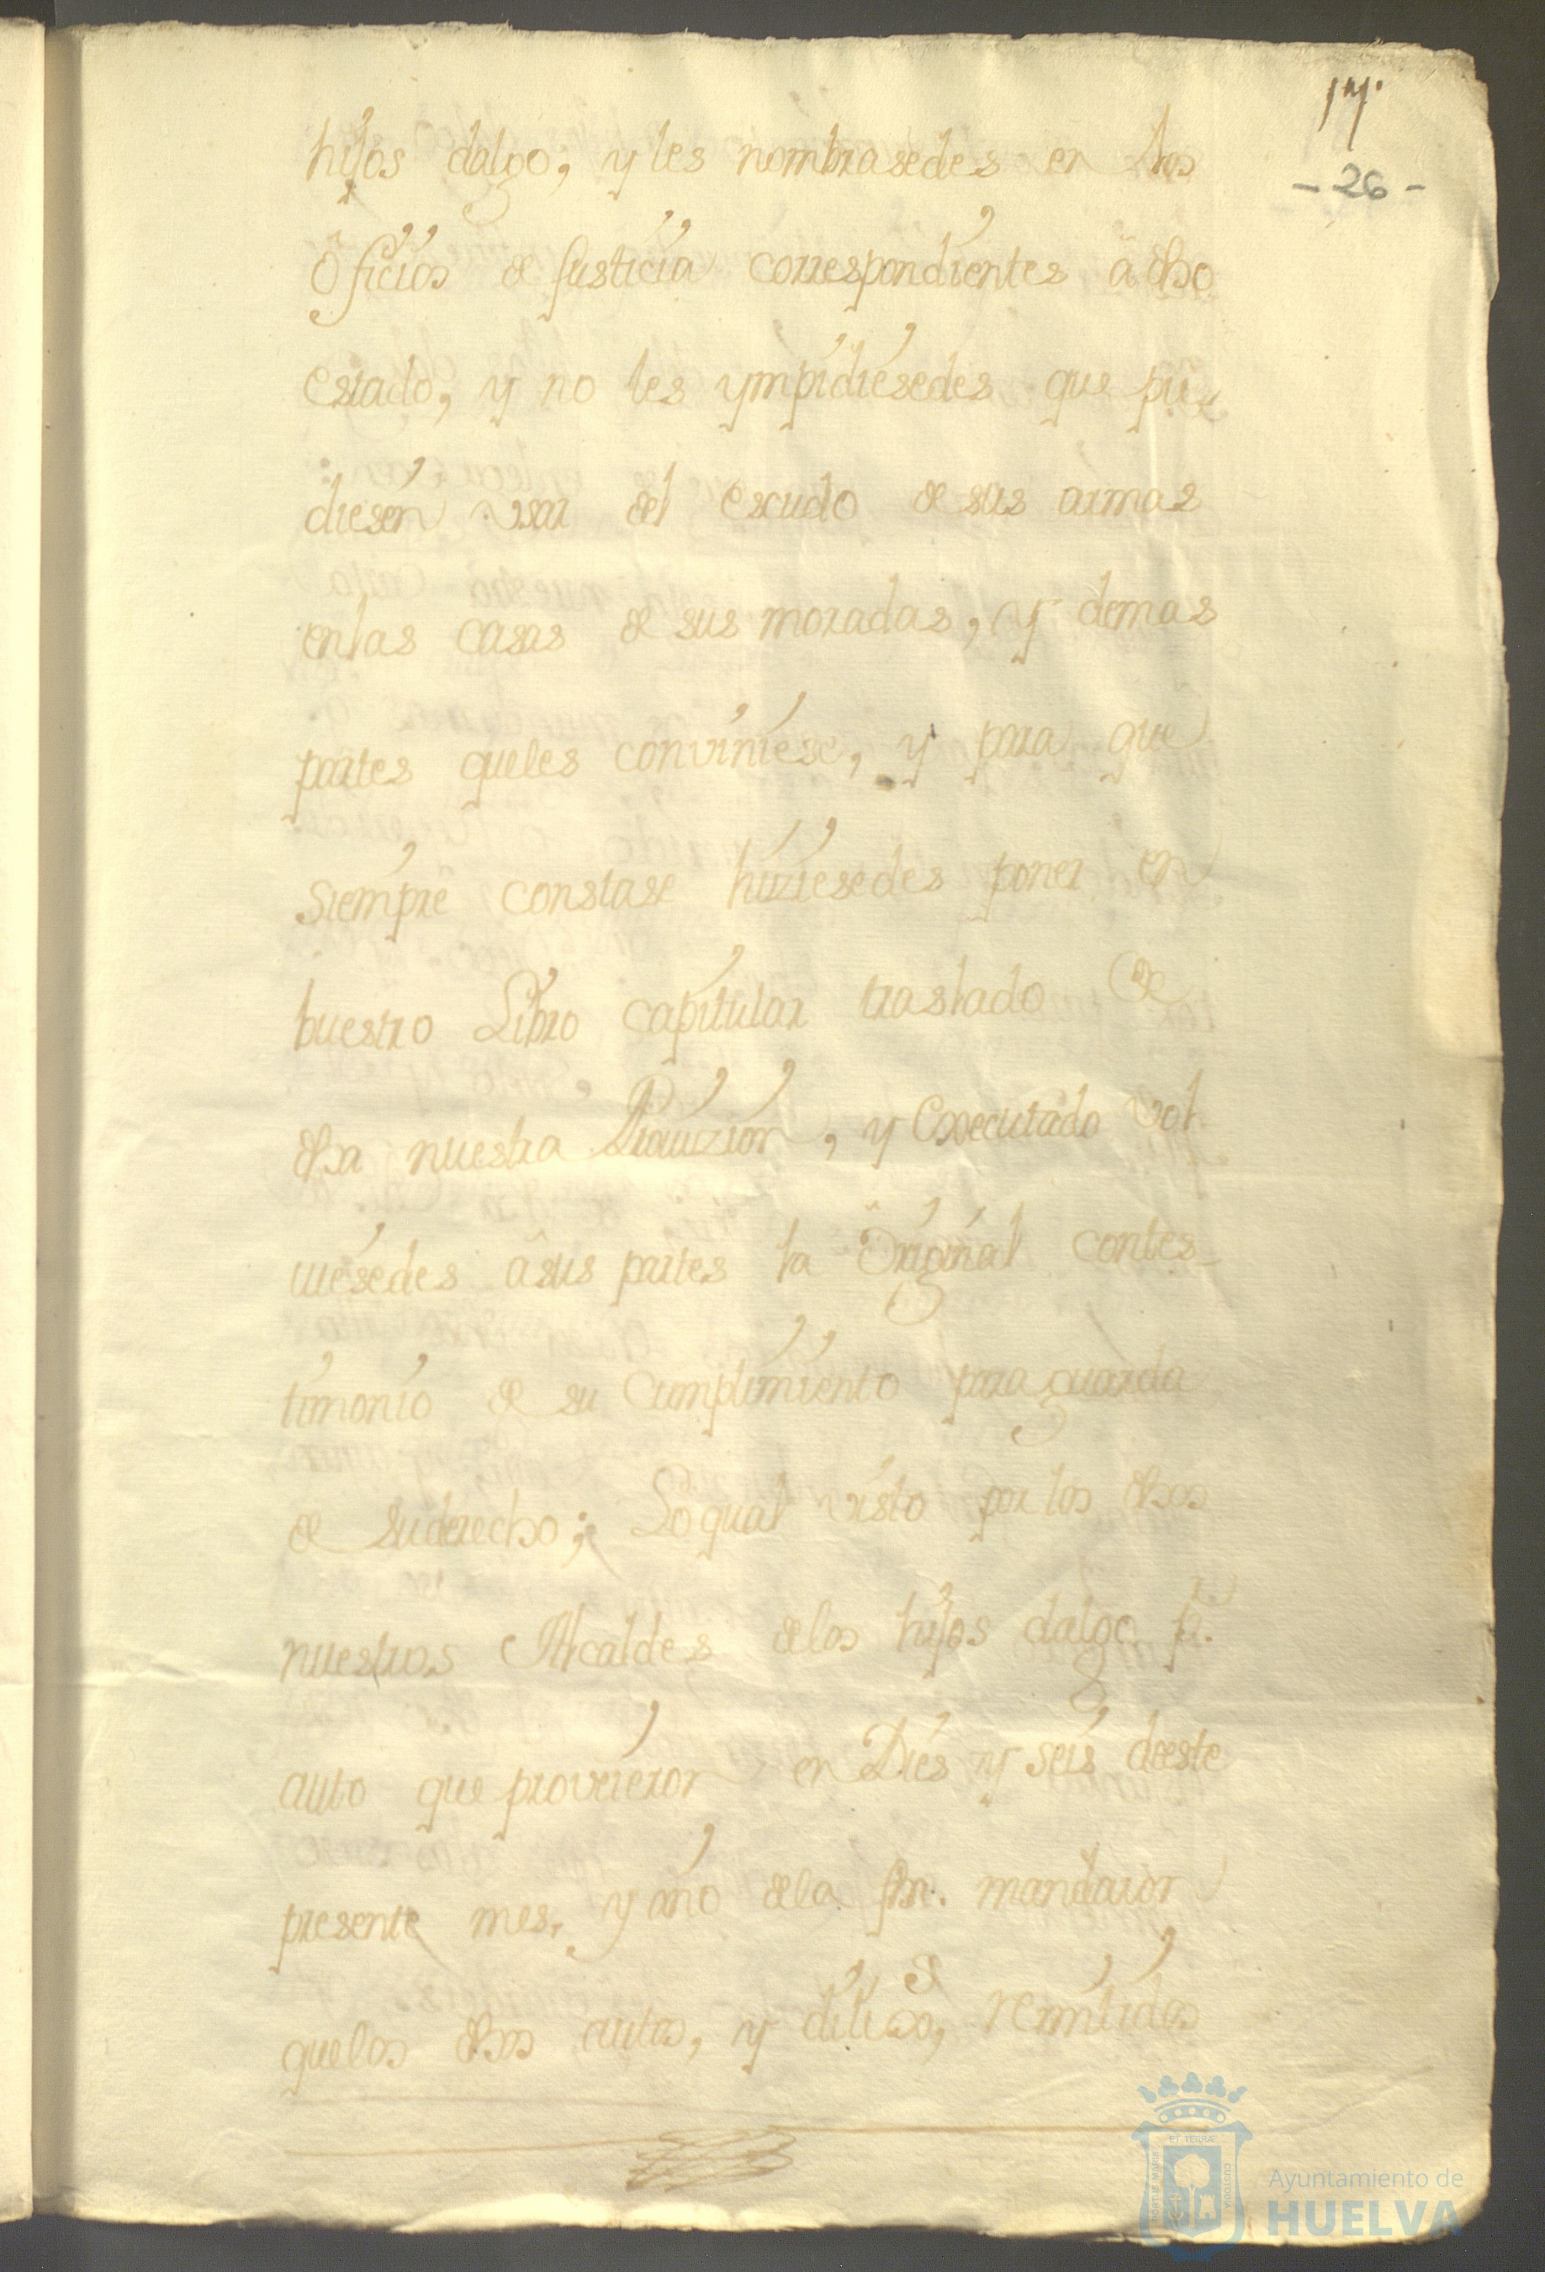 17.
- 26 -
hijos dalgo, y les nombrasedes en los
oficios de justicia correspondientes â dho
estado, y no les ympidiesedes que pu-
diesen vsar del escudo de sus armas
en las casas de sus moradas, y demas
partes queles conviniese, y para que
siempre constase hiziesedes poner en
buestro Libro capitular traslado de
dha nuestra Provizion, y executado vol
uiesedes âsus partes la Original contes-
timonio de su cumplimiento para guarda
de suderecho; Lo qual visto por los dhos
nuestros Alcaldes delos hijos dalgo p.
auto que proveieron en Dies y seis deeste
presente mes, y año dela fha. mandaron
quelos dhos autos, y dilig.s, remitidos
Ayuntamiento de
HUELVA